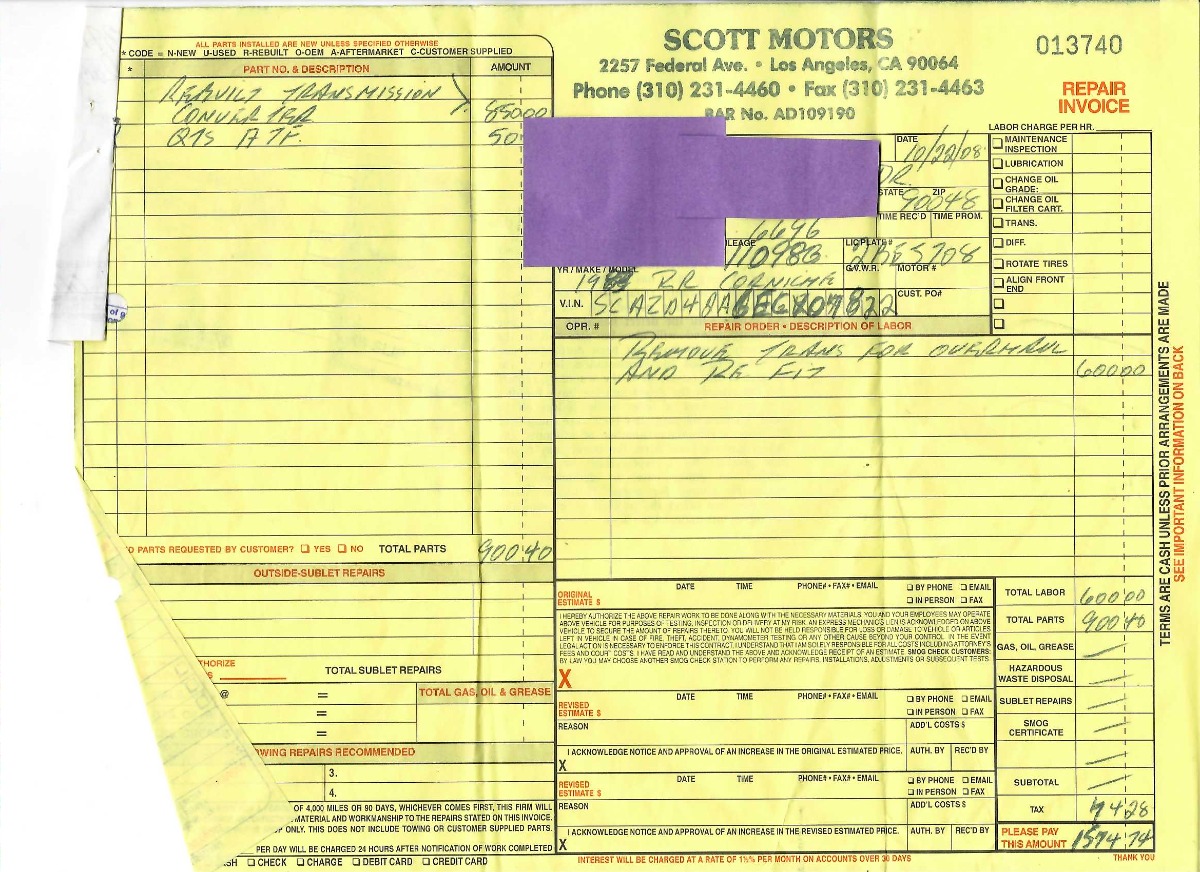 ALL PARTS INSTALLED ARE NEW UNLESS SPECIFIED OTHERWISE
* CODE = N-NEW U-USED R-REBUILT O-OEM A-AFTERMARKET C-CUSTOMER SUPPLIED
* PART NO. & DESCRIPTION AMOUNT
REBUILT TRANSMISSION
CONVERTER 85000
QTS ATF 50
TOTAL PARTS 900.40
PARTS REQUESTED BY CUSTOMER? YES NO
OUTSIDE-SUBLET REPAIRS
THORIZE
$
TOTAL SUBLET REPAIRS
@ = TOTAL GAS, OIL & GREASE
=
=
WING REPAIRS RECOMMENDED
3.
4.
OF 4,000 MILES OR 90 DAYS, WHICHEVER COMES FIRST, THIS FIRM WILL
MATERIAL AND WORKMANSHIP TO THE REPAIRS STATED ON THIS INVOICE.
ONLY. THIS DOES NOT INCLUDE TOWING OR CUSTOMER SUPPLIED PARTS.
PER DAY WILL BE CHARGED 24 HOURS AFTER NOTIFICATION OF WORK COMPLETED
SH CHECK CHARGE DEBIT CARD CREDIT CARD
SCOTT MOTORS
2257 Federal Ave. • Los Angeles, CA 90064
Phone (310) 231-4460 • Fax (310) 231-4463
BAR No. AD109190
013740
REPAIR
INVOICE
LABOR CHARGE PER HR.
DATE 10/22/08
DR.
STATE ZIP 90048
TIME REC'D TIME PROM.
6696
LEAGE 110983 LIC PLATE # 2BES708
YR / MAKE / MODEL G.V.W.R. MOTOR #
RR CORNICHE
V.I.N. CUST. PO#
MAINTENANCE INSPECTION
LUBRICATION
CHANGE OIL GRADE:
CHANGE OIL FILTER CART.
TRANS.
DIFF.
ROTATE TIRES
ALIGN FRONT END
OPR. # REPAIR ORDER • DESCRIPTION OF LABOR
REMOVE TRANS FOR OVERHAUL
AND RE FIT 60000
ORIGINAL ESTIMATE $ DATE TIME PHONE# • FAX# • EMAIL BY PHONE EMAIL
IN PERSON FAX
I HEREBY AUTHORIZE THE ABOVE REPAIR WORK TO BE DONE ALONG WITH THE NECESSARY MATERIALS. YOU AND YOUR EMPLOYEES MAY OPERATE
ABOVE VEHICLE FOR PURPOSES OF TESTING, INSPECTION OR DELIVERY AT MY RISK. AN EXPRESS MECHANICS LIEN IS ACKNOWLEDGED ON ABOVE
VEHICLE TO SECURE THE AMOUNT OF REPAIRS THERETO. YOU WILL NOT BE HELD RESPONSIBLE FOR LOSS OR DAMAGE TO VEHICLE OR ARTICLES
LEFT IN VEHICLE IN CASE OF FIRE, THEFT, ACCIDENT, DYNAMOMETER TESTING OR ANY OTHER CAUSE BEYOND YOUR CONTROL. IN THE EVENT
LEGAL ACTION IS NECESSARY TO ENFORCE THIS CONTRACT, I UNDERSTAND THAT I AM SOLELY RESPONSIBLE FOR ALL COSTS INCLUDING ATTORNEY'S
FEES AND COURT COSTS. I HAVE READ AND UNDERSTAND THE ABOVE AND ACKNOWLEDGE RECEIPT OF AN ESTIMATE. SMOG CHECK CUSTOMERS:
BY LAW YOU MAY CHOOSE ANOTHER SMOG CHECK STATION TO PERFORM ANY REPAIRS, INSTALLATIONS, ADJUSTMENTS OR SUBSEQUENT TESTS.
X
REVISED ESTIMATE $ DATE TIME PHONE# • FAX# • EMAIL BY PHONE EMAIL
IN PERSON FAX
REASON ADD'L COSTS $
I ACKNOWLEDGE NOTICE AND APPROVAL OF AN INCREASE IN THE ORIGINAL ESTIMATED PRICE. AUTH. BY REC'D BY
X
REVISED ESTIMATE $ DATE TIME PHONE# • FAX# • EMAIL BY PHONE EMAIL
IN PERSON FAX
REASON ADD'L COSTS $
I ACKNOWLEDGE NOTICE AND APPROVAL OF AN INCREASE IN THE REVISED ESTIMATED PRICE. AUTH. BY REC'D BY
X
TOTAL LABOR 60000
TOTAL PARTS 900 40
GAS, OIL, GREASE
HAZARDOUS WASTE DISPOSAL
SUBLET REPAIRS
SMOG CERTIFICATE
SUBTOTAL
TAX 74 28
PLEASE PAY THIS AMOUNT 1574 74
INTEREST WILL BE CHARGED AT A RATE OF 1½% PER MONTH ON ACCOUNTS OVER 30 DAYS
THANK YOU
TERMS ARE CASH UNLESS PRIOR ARRANGEMENTS ARE MADE
SEE IMPORTANT INFORMATION ON BACK